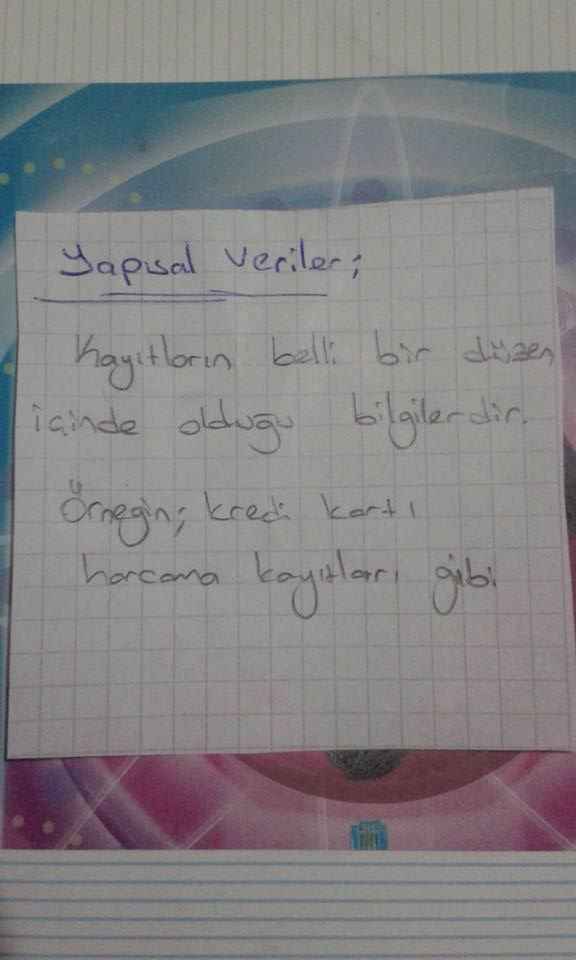 Yapısal Veriler;
Kayıtların belli bir düzen
içinde olduğu bilgilerdir.
Örnegin; kredi kartı
harcama kayıtları gibi